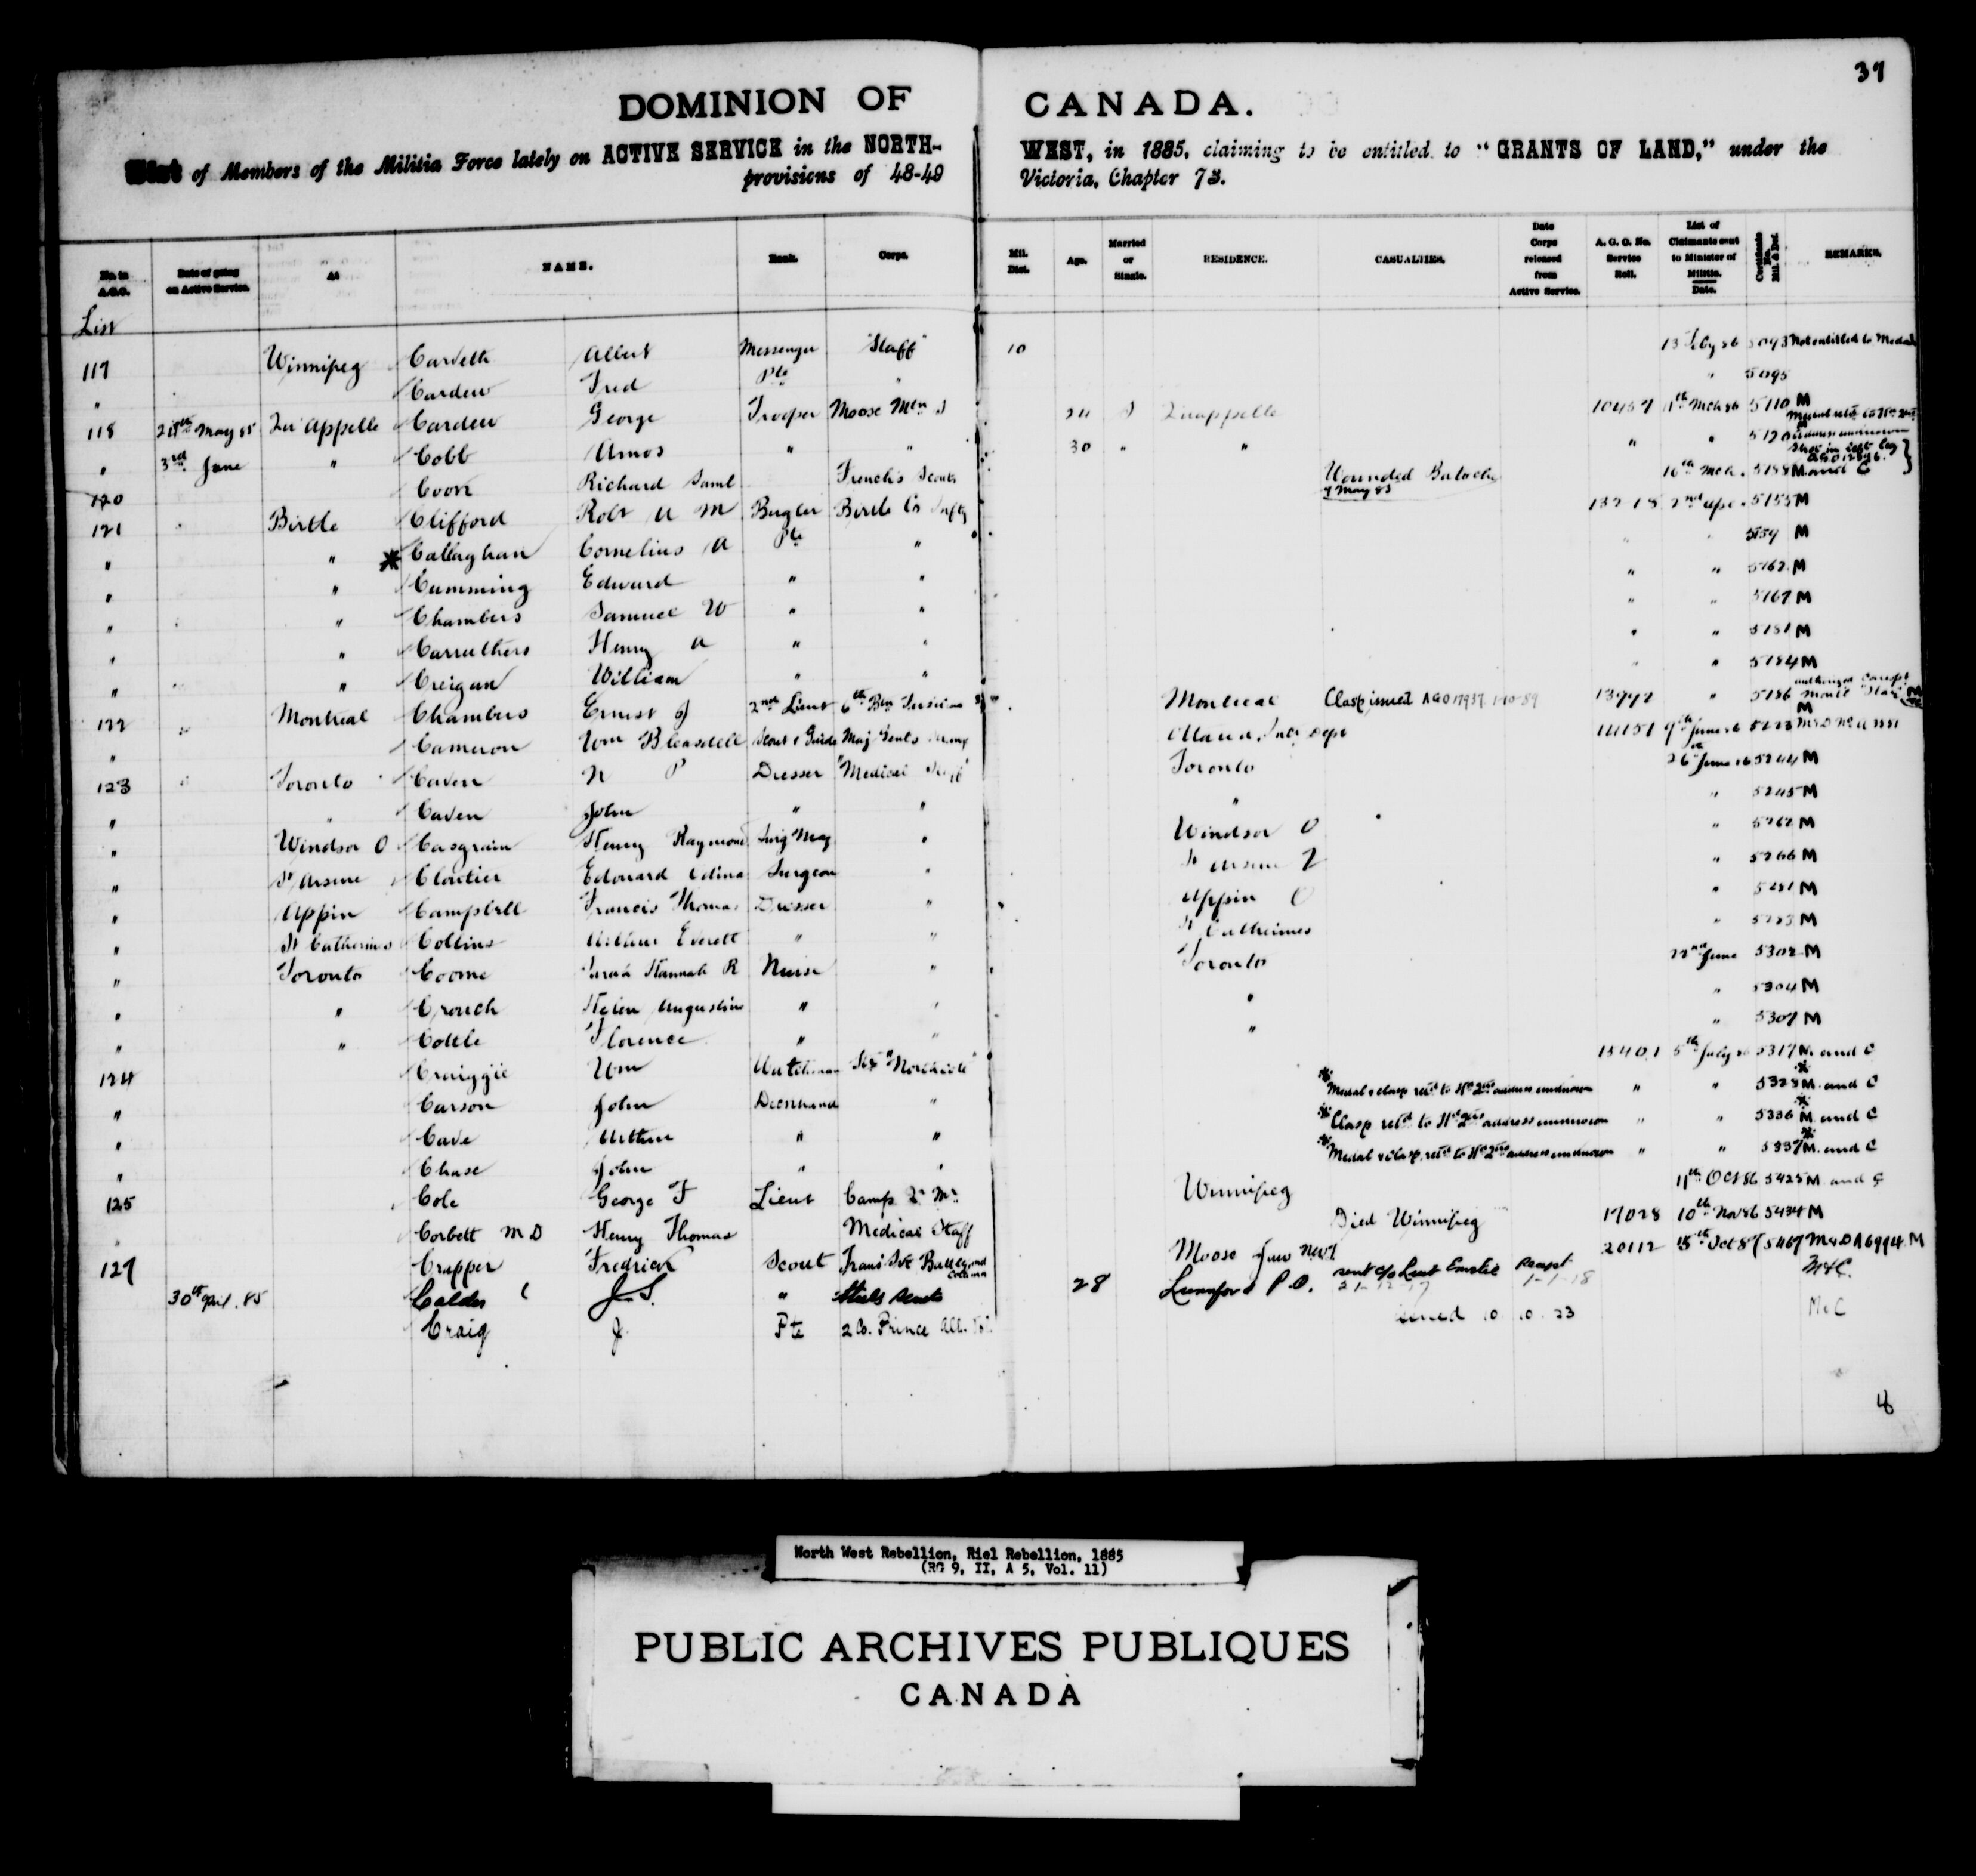 37
DOMINION OF CANADA.
List of Members of the Militia Force lately on ACTIVE SERVICE in the NORTH-WEST, in 1885, claiming to be entitled to "GRANTS OF LAND," under the
provisions of 48-49 Victoria, Chapter 73.
No. in A.G.O. Date of going on Active Service. At NAME. Rank. Corps. Mil. Dist. Age. Married or Single. RESIDENCE. CASUALTIES. Date Corps released from Active Service. A. G. O. No. Service Roll. List of Claimants sent to Minister of Militia. Date. Certificate No. Mil. & Def. REMARKS.
List
117 Winnipeg Carveth Albert Messenger "Staff" 10 13 Feby 86 5093 Not entitled to Medal
" Carden Fred Pte " " 5095
118 May 85 Qu'Appelle Carden George Trooper Moose Mtn S 24 S Quappelle 10457 11th Mch 86 5110 M
" 3rd June " Cobb Amos " " 30 " " " " address unknown
120 Coon Richard Saml French's Scouts Wounded Batoche 9 May 85 16th Mch. 5188 M and C
Shot in left leg
121 Birtle Clifford Robt A M Bugler Birtle Co Infty 13218 2nd Apl. 5153 M
" " * Callaghan Cornelius A Pte " " " 5159 M
" " Cumming Edward " " " " 5162 M
" " Chambers Samuel W " " " " 5167 M
" " Carruthers Henry A " " " " 5181 M
" " Creigan William " " " " 5184 M
122 Montreal Chambers Ernest J 2nd Lieut 6th Btn Fusiliers Montreal Clasp issued AGO 17937 1-10-89 13992 " 5186
" Cameron Wm Bleasdell Scout & Guide Maj Genls 14151 9th June 86
123 Toronto Caven W P Dresser "Medical Staff" Toronto 26th June 86 5244 M
" " Caven John " " " " 5245 M
" Windsor O Casgrain Henry Raymond Surg Maj " Windsor O " 5262 M
" St Arsene Cloutier Edouard Surgeon " St Arsene Q " 5266 M
" Appin Campbell Francis Thomas Dresser " Appin O " 5281 M
" St Catherines Collins Arthur Everett " " St Catherines " 5283 M
" Toronto Coome Sarah Hannah R Nurse " Toronto 22nd June 5302 M
" " Crouch Helen Augustine " " " " 5304 M
" " Cottle Florence " " " " 5307 M
124 Craiggie Wm Watchman Str "Northcote" 15401 5th July 86 5317 M. and C
" Carson John Deckhand " * Medal & clasp retd to address unknown " " 5323 M. and C
" Cave Arthur " " * Clasp retd to address unknown " " 5336 M. and C
" Chase John " " * Medal & Clasp retd to address unknown " " 5337 M. and C
125 Cole George F Lieut Camp Qr Mr Winnipeg 11th Oct 86 5425 M and C
" Corbett M D Henry Thomas Medical Staff Died Winnipeg 17028 10th Nov 86 5434 M
127 Crapper Fredrick Scout Trans Svc Battleford Column Moose Jaw NWT 20112 15th Oct 87 5467 M&D A6994 M
30th April. 85 Calder J. S. " Steels Scouts 28 Lumford P.O. M&C.
Craig J. Pte 2 Co. Prince Alb. Vol. issued 10 10 23 M&C
North West Rebellion, Riel Rebellion, 1885
(RG 9, II, A 5, Vol. 11)
PUBLIC ARCHIVES PUBLIQUES
CANADA